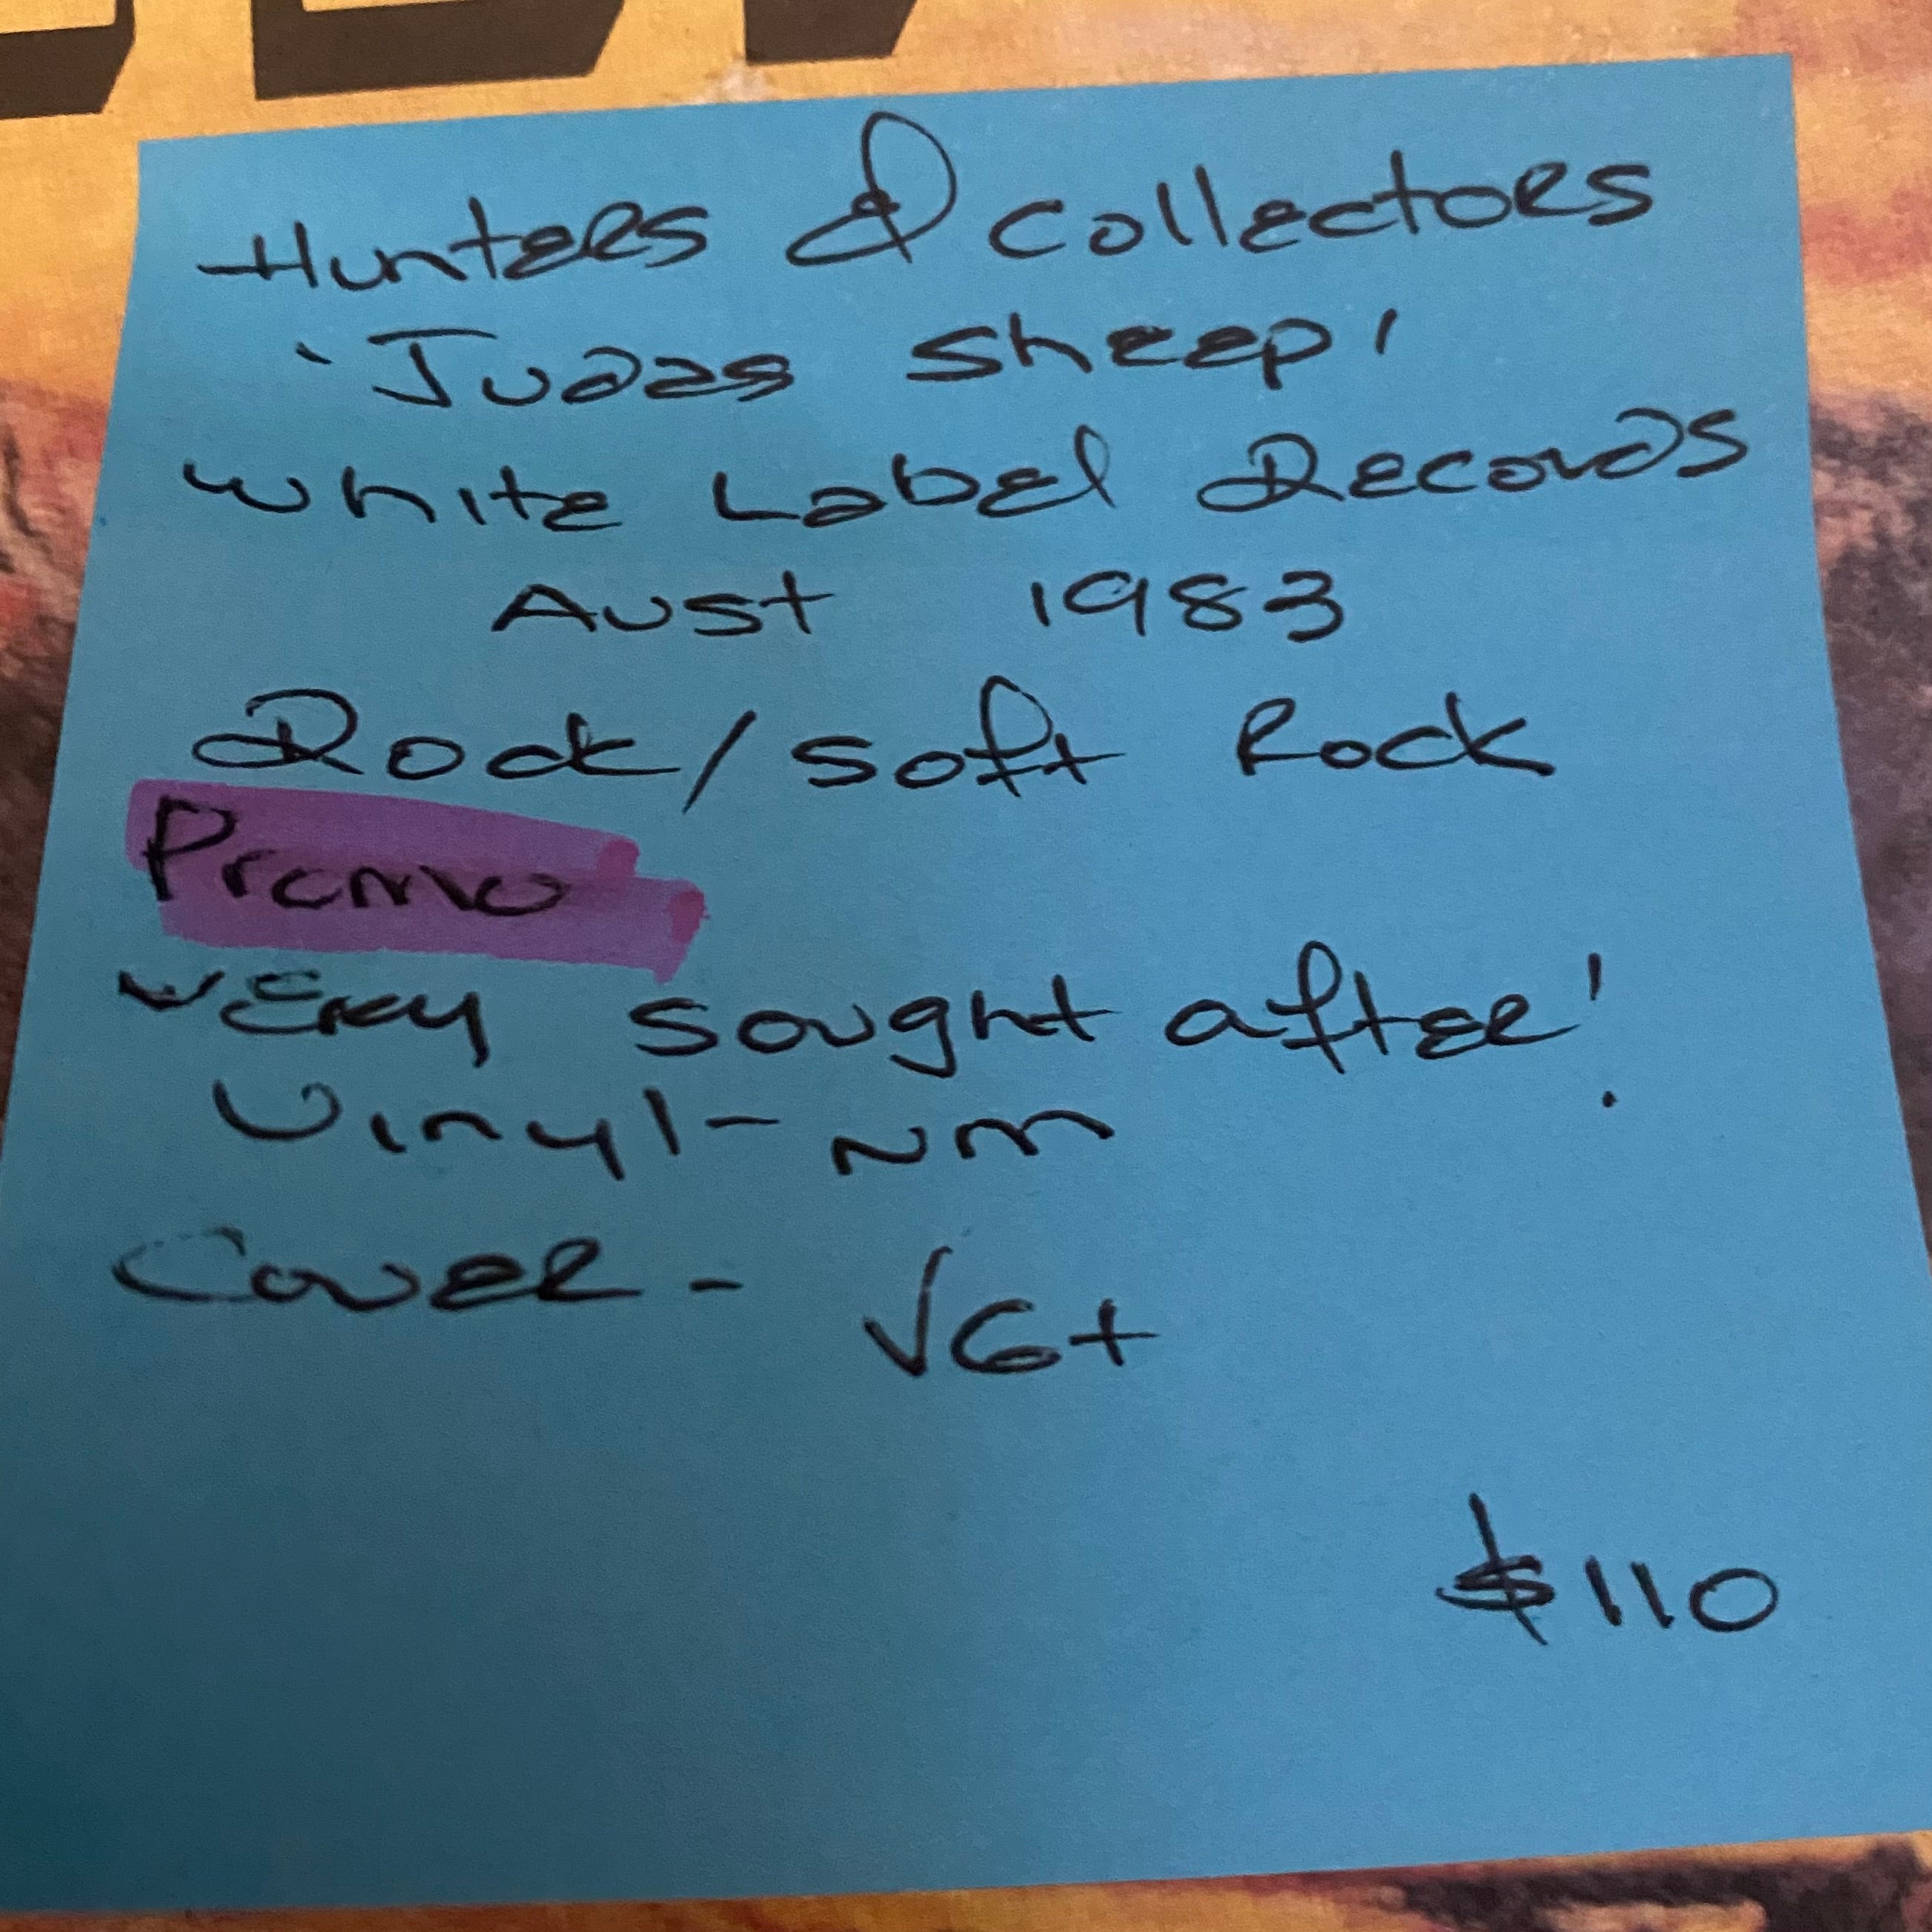 Hunters & Collectors
'Judas Sheep'
White Label Records
Aust 1983
Rock/Soft Rock
Promo
Very sought after!
Vinyl - NM
Cover - VG+
$110